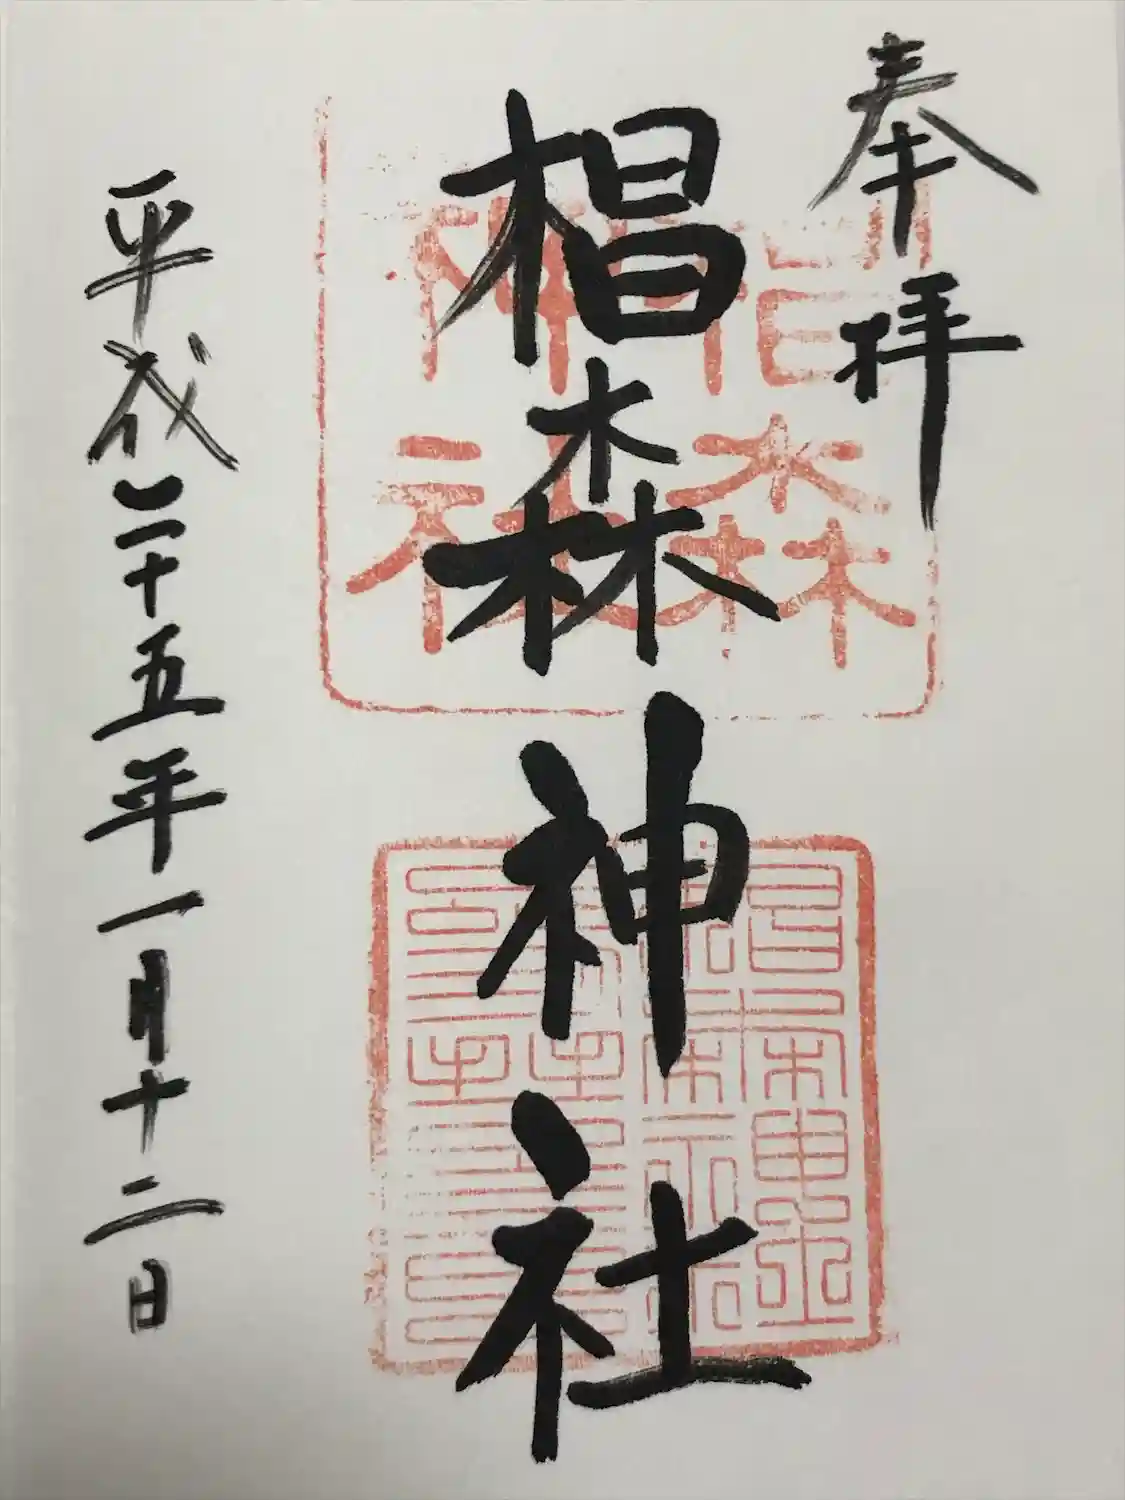 奉拝
椙森神社
椙森
神社
平成二十五年一月十二日